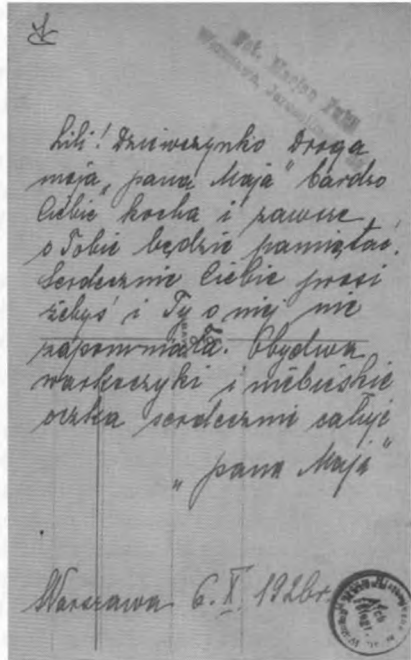 Fot. Marjan Fuks
Warszawa,
Lili! Dziewczynko Droga
moja „pana Maja" bardzo
Ciebie kocha i zawsze
o Tobie będzie pamiętać.
Serdecznie Ciebie prosi
żebyś i Ty o niej nie
zapomniała. Obydwa
warkoczyki i niebieskie
oczka serdeczni całuje
„pana Maja"
Warszawa 6. X. 1926 r.